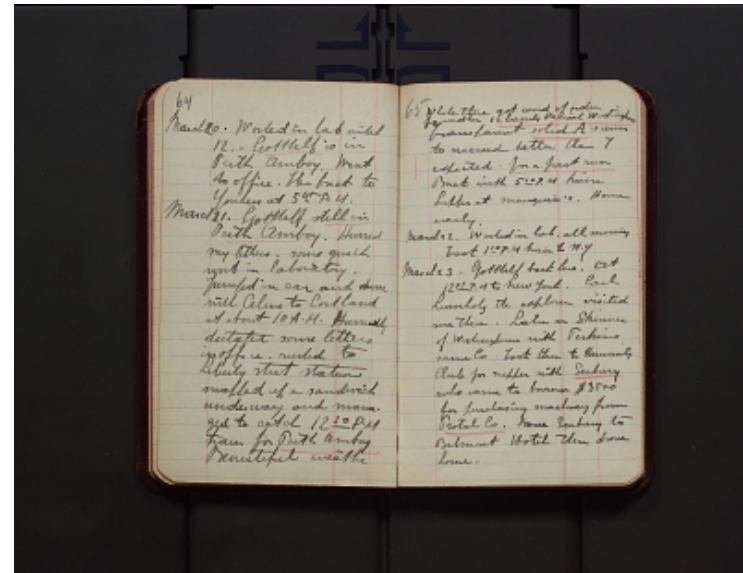 64
March 20. Worked in lab until
12. - Gottlelf is in
Perth Amboy. Went
to office. Then back to
Yonkers at 5 P.M.
March 21. Gottlelf still in
Perth Amboy. Hurried
my letters. some quick
work in laboratory.
Jumped in car and
with Celine to Cortland
at about 10 A.M. Hurriedly
dictated some letters
in office. rushed to
Liberty street station
snuffed up a sandwich
underway and mana-
ged to catch 12 20 P.M
train for Perth Amboy
Beautiful weather
65 While there got word of order
transparent solid A seems
to succeed better than I
expected. for a first run
Back with 5 P.M train
Supper at Home
early.
March 22. Worked in lab. all morning
Took 1 P.M train to N.Y
March 23. Gottlelf back here.
12 P.M to New York. Carl
Lumholtz the explorer visited
me there. Later on Skinner
of Westinghouse with Perkins,
same Co. Took them to University
Club for supper with Seabury
who came to borrow $3500
for purchasing machinery from
Protal Co. Drove Seabury to
Belmont Hotel then drove
home.